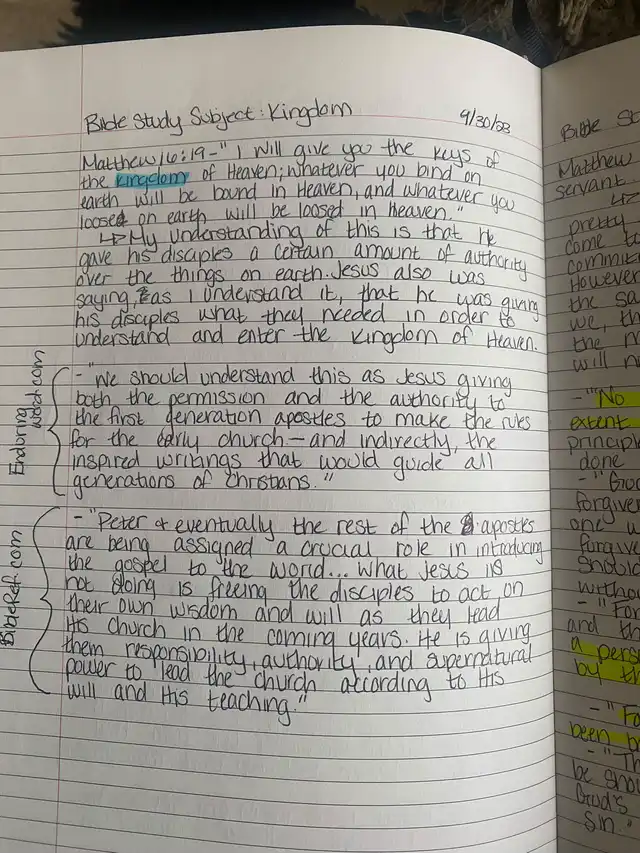 Bible Study Subject: Kingdom 9/30/23
Matthew 16:19 - "I will give you the keys of
the kingdom of Heaven; whatever you bind on
earth will be bound in Heaven, and whatever you
loosed on earth will be loosed in Heaven."
↳ My understanding of this is that he
gave his disciples a certain amount of authority
over the things on earth. Jesus also was
saying, as I understand it, that he was giving
his disciples what they needed in order to
understand and enter the Kingdom of Heaven.
Enduring
word.com
- "We should understand this as Jesus giving
both the permission and the authority to
the first generation apostles to make the rules
for the early church - and indirectly, the
inspired writings that would guide all
generations of Christians."
BibleRef.com
- "Peter & eventually the rest of the apostles
are being assigned a crucial role in introducing
the gospel to the world... what Jesus is
not doing is freeing the disciples to act on
their own wisdom and will as they lead
His church in the coming years. He is giving
them responsibility, authority, and supernatural
power to lead the church according to His
will and His teaching."
Bible St
Matthew
servant
↳
pretty
come to
commit
However
the sa
we, th
the n
will n
- "No
extent
principl
done
- "God
forgive
one w
forgiv
should
withou
- "For
and th
a pers
by th
- "Fo
been p
- "Th
be shou
God's
sin."